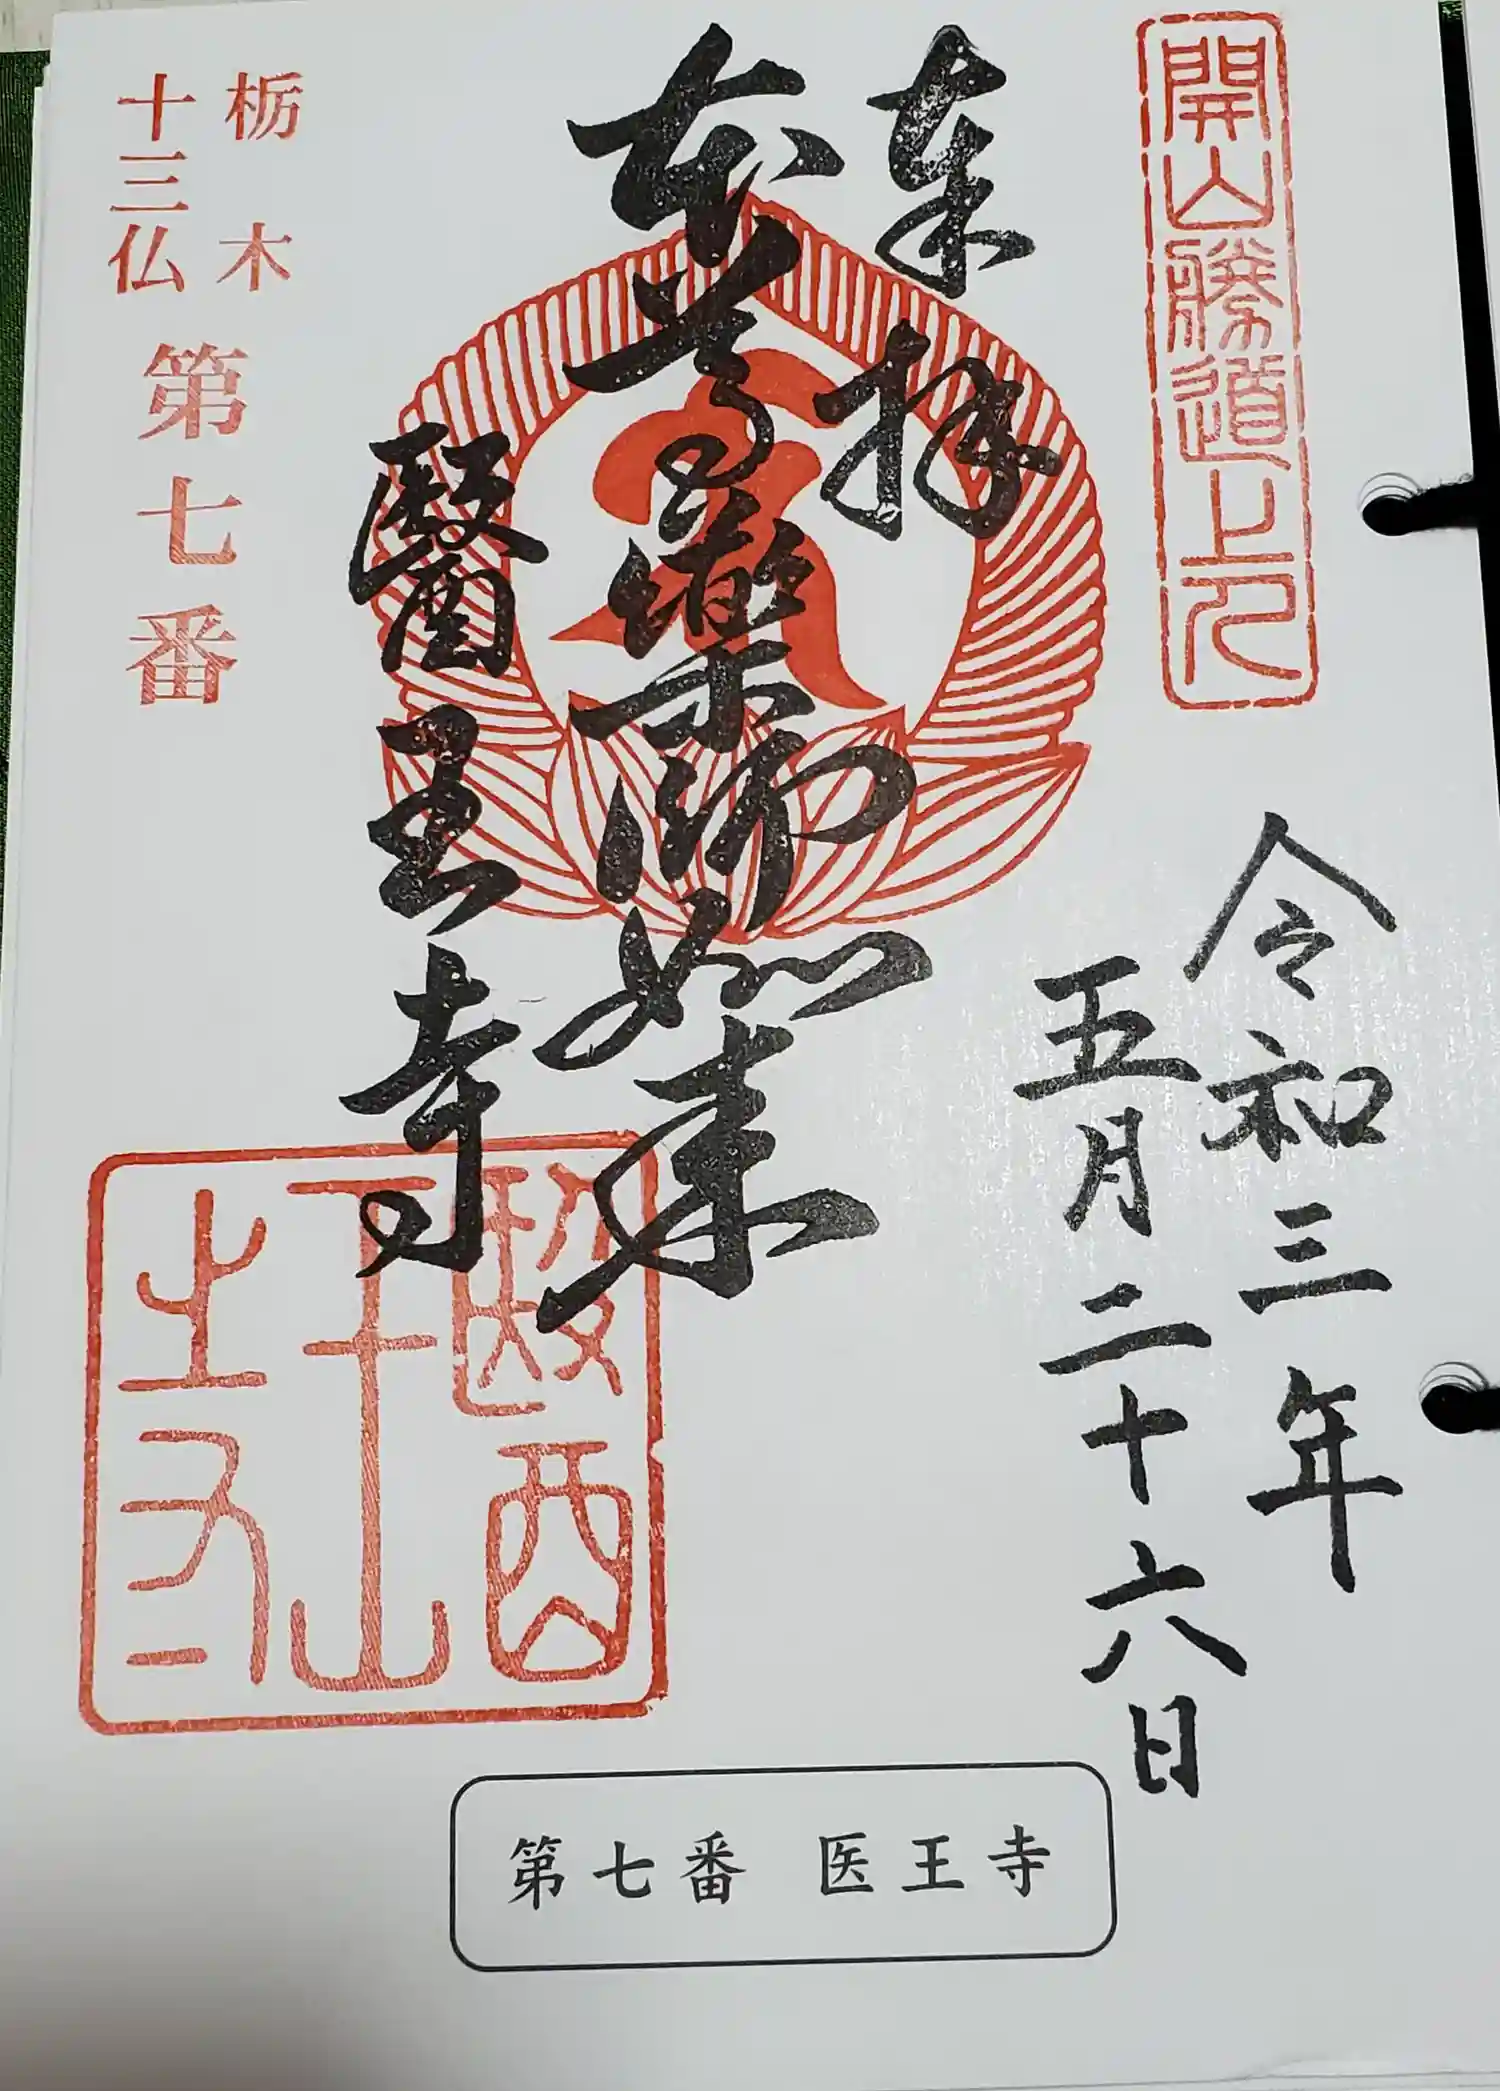 開山勝道上人
令和三年
五月二十六日
奉拝
本尊薬師如来
醫王寺
栃木
十三仏
第七番
醫王山之印
第七番 医王寺